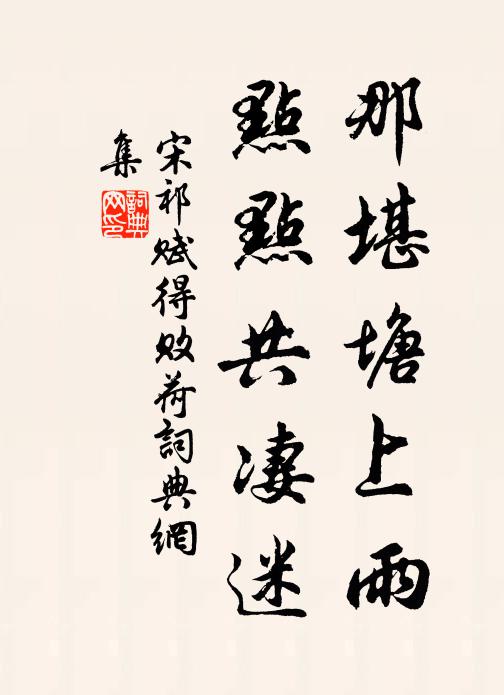 那堪塘上雨
點點共凄迷
宋祁賦得敗荷詞典網
集
詞典
网印